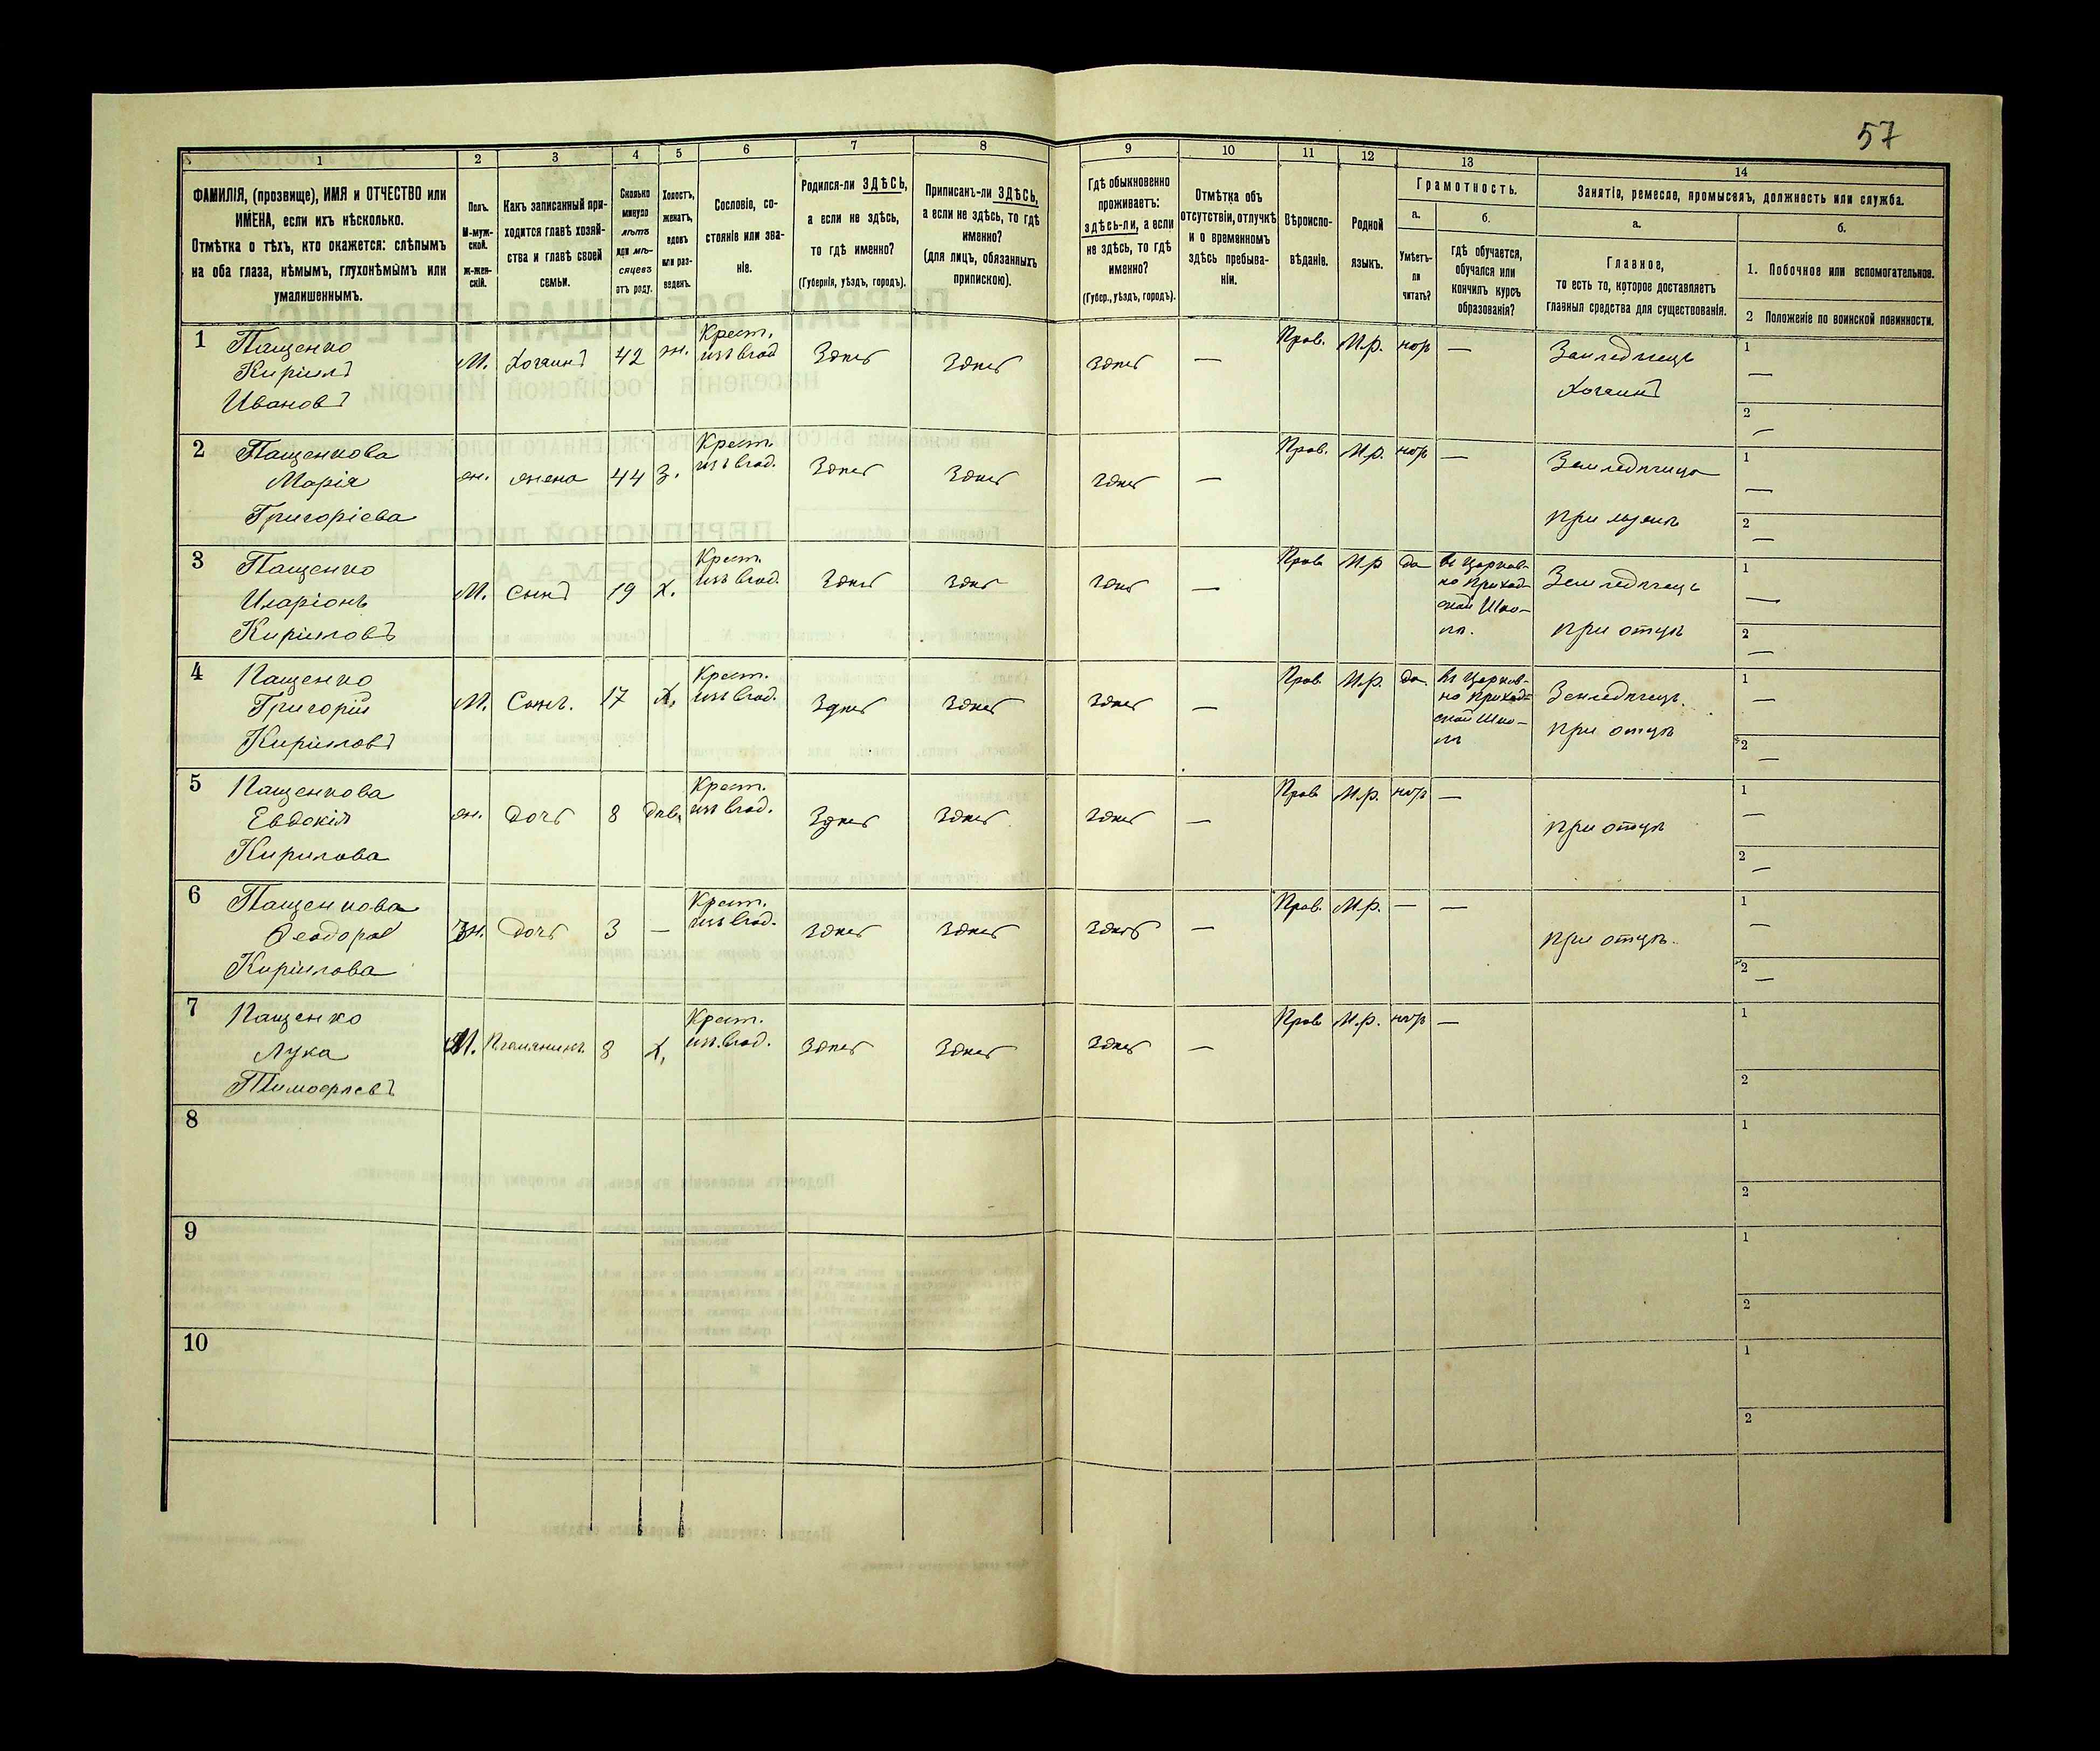 57
1 2 3 4 5 6 7 8 9 10 11 12 13 14
ФАМИЛІЯ, (прозвище), ИМЯ и ОТЧЕСТВО или
ИМЕНА, если ихъ нѣсколько.
Отмѣтка о тѣхъ, кто окажется: слѣпымъ
на оба глаза, нѣмымъ, глухонѣмымъ или
умалишеннымъ.
Полъ.
М-муж-
ской.
Ж-жен-
скій.
Какъ записанный при-
ходится главѣ хозяй-
ства и главѣ своей
семьи.
Сколько
минуло
лѣтъ
или мѣ-
сяцевъ
отъ роду.
Холостъ,
женатъ,
вдовъ
или раз-
веденъ.
Сословіе, со-
стояніе или зва-
ніе.
Родился-ли ЗДѢСЬ,
а если не здѣсь,
то гдѣ именно?
(Губернія, уѣздъ, городъ).
Приписанъ-ли ЗДѢСЬ,
а если не здѣсь, то гдѣ
именно?
(для лицъ, обязанныхъ
припискою).
Гдѣ обыкновенно
проживаетъ:
здѣсь-ли, а если
не здѣсь, то гдѣ
именно?
(Губер., уѣздъ, городъ).
Отмѣтка объ
отсутствіи, отлучкѣ
и о временномъ
здѣсь пребыва-
ніи.
Вѣроиспо-
вѣданіе.
Родной
языкъ.
Грамотность.
а.
Умѣетъ-
ли
читать?
б.
Гдѣ обучается,
обучался или
кончилъ курсъ
образованія?
Занятія, ремесло, промыселъ, должность или служба.
а.
Главное,
то есть то, которое доставляетъ
главныя средства для существованія.
б.
1. Побочное или вспомогательное.
2 Положеніе по воинской повинности.
1 Пащенко
Кирилъ
Ивановъ
М. Хозяинъ 42 ж. Крест.
изъ влад Здѣсь Здѣсь Здѣсь — Прав. М.р. нѣтъ — Земледѣлецъ
Хозяинъ
1 —
2 —
2 Пащенкова
Марія
Григоріева
ж. жена 44 З. Крест.
изъ влад. Здѣсь Здѣсь Здѣсь — Прав. М.р. нѣтъ — Земледѣлица
при мужѣ
1 —
2 —
3 Пащенко
Иларіонъ
Кириловъ
М. Сынъ 19 Х. Крест.
изъ влад. Здѣсь Здѣсь Здѣсь — Прав М.р да въ Церков-
но Приход-
ской Шко-
лѣ. Земледѣлецъ
при отцѣ
1 —
2 —
4 Пащенко
Григорій
Кириловъ
М. Сынъ. 17 Х. Крест.
изъ влад. Здѣсь Здѣсь Здѣсь — Прав. М.р. да. въ Церков-
но Приход-
ской Шко-
лѣ Земледѣлецъ.
при отцѣ
1 —
2 —
5 Пащенкова
Евдокія
Кирилова
ж. дочь 8 дѣв. Крест.
изъ влад. Здѣсь Здѣсь Здѣсь — Прав М.р. нѣтъ — при отцѣ
1 —
2 —
6 Пащенкова
Ѳеодора
Кирилова
ж. дочь 3 — Крест.
изъ влад. Здѣсь Здѣсь Здѣсь — Прав. М.р. — — при отцѣ.
1 —
2 —
7 Пащенко
Лука
Тимофѣевъ
М. Племянникъ 8 Х. Крест.
изъ влад. Здѣсь Здѣсь Здѣсь — Прав М.р. нѣтъ —
1
2
8
1
2
9
1
2
10
1
2